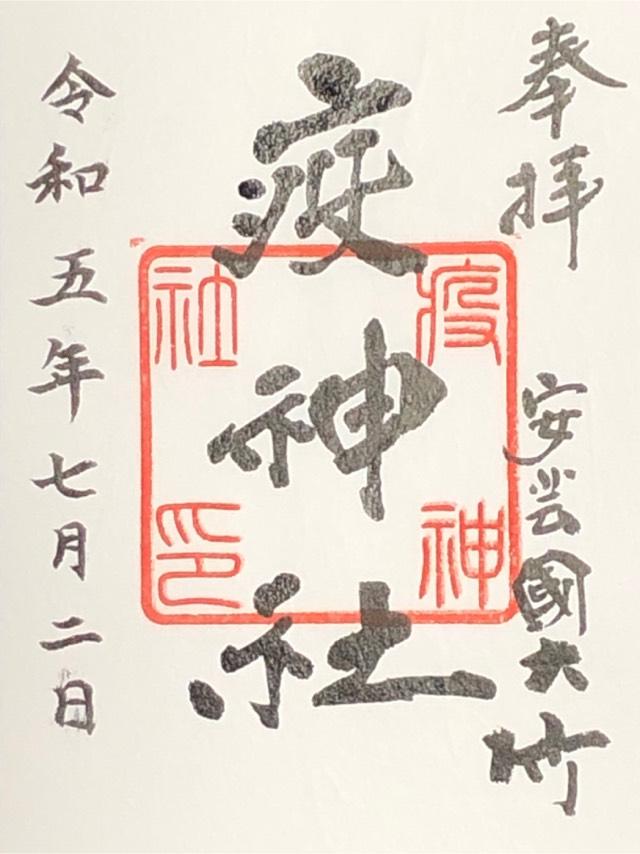 奉拝
安芸國大竹
疫神社
疫神
社印
令和五年七月二日